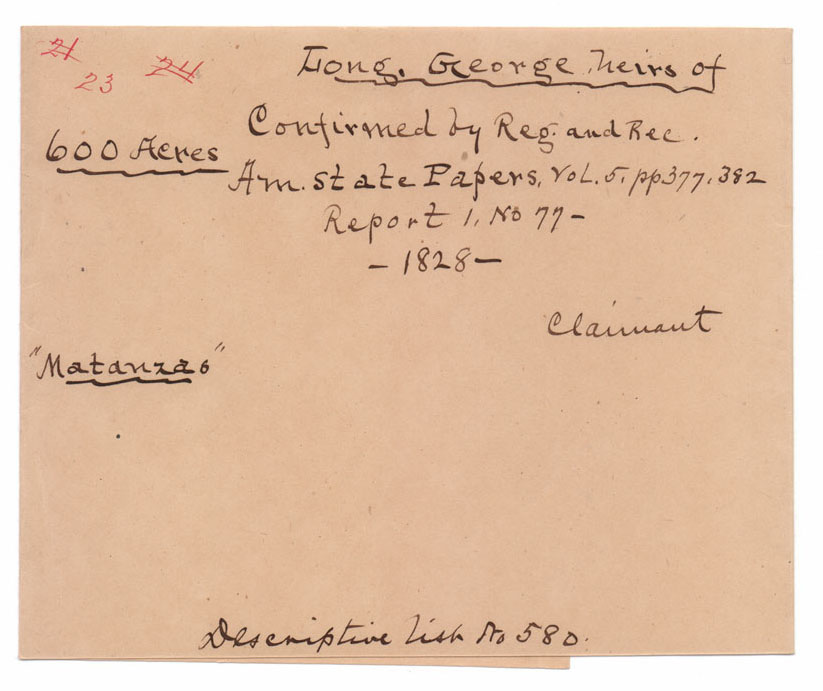 21
23
24
Long, George, heirs of
Confirmed by Reg. and Rec.
600 Acres
Am. State Papers, Vol. 5, pp 377, 382
Report 1, No 77-
- 1828 -
Claimant
"Matanzas"
Descriptive list No 580.